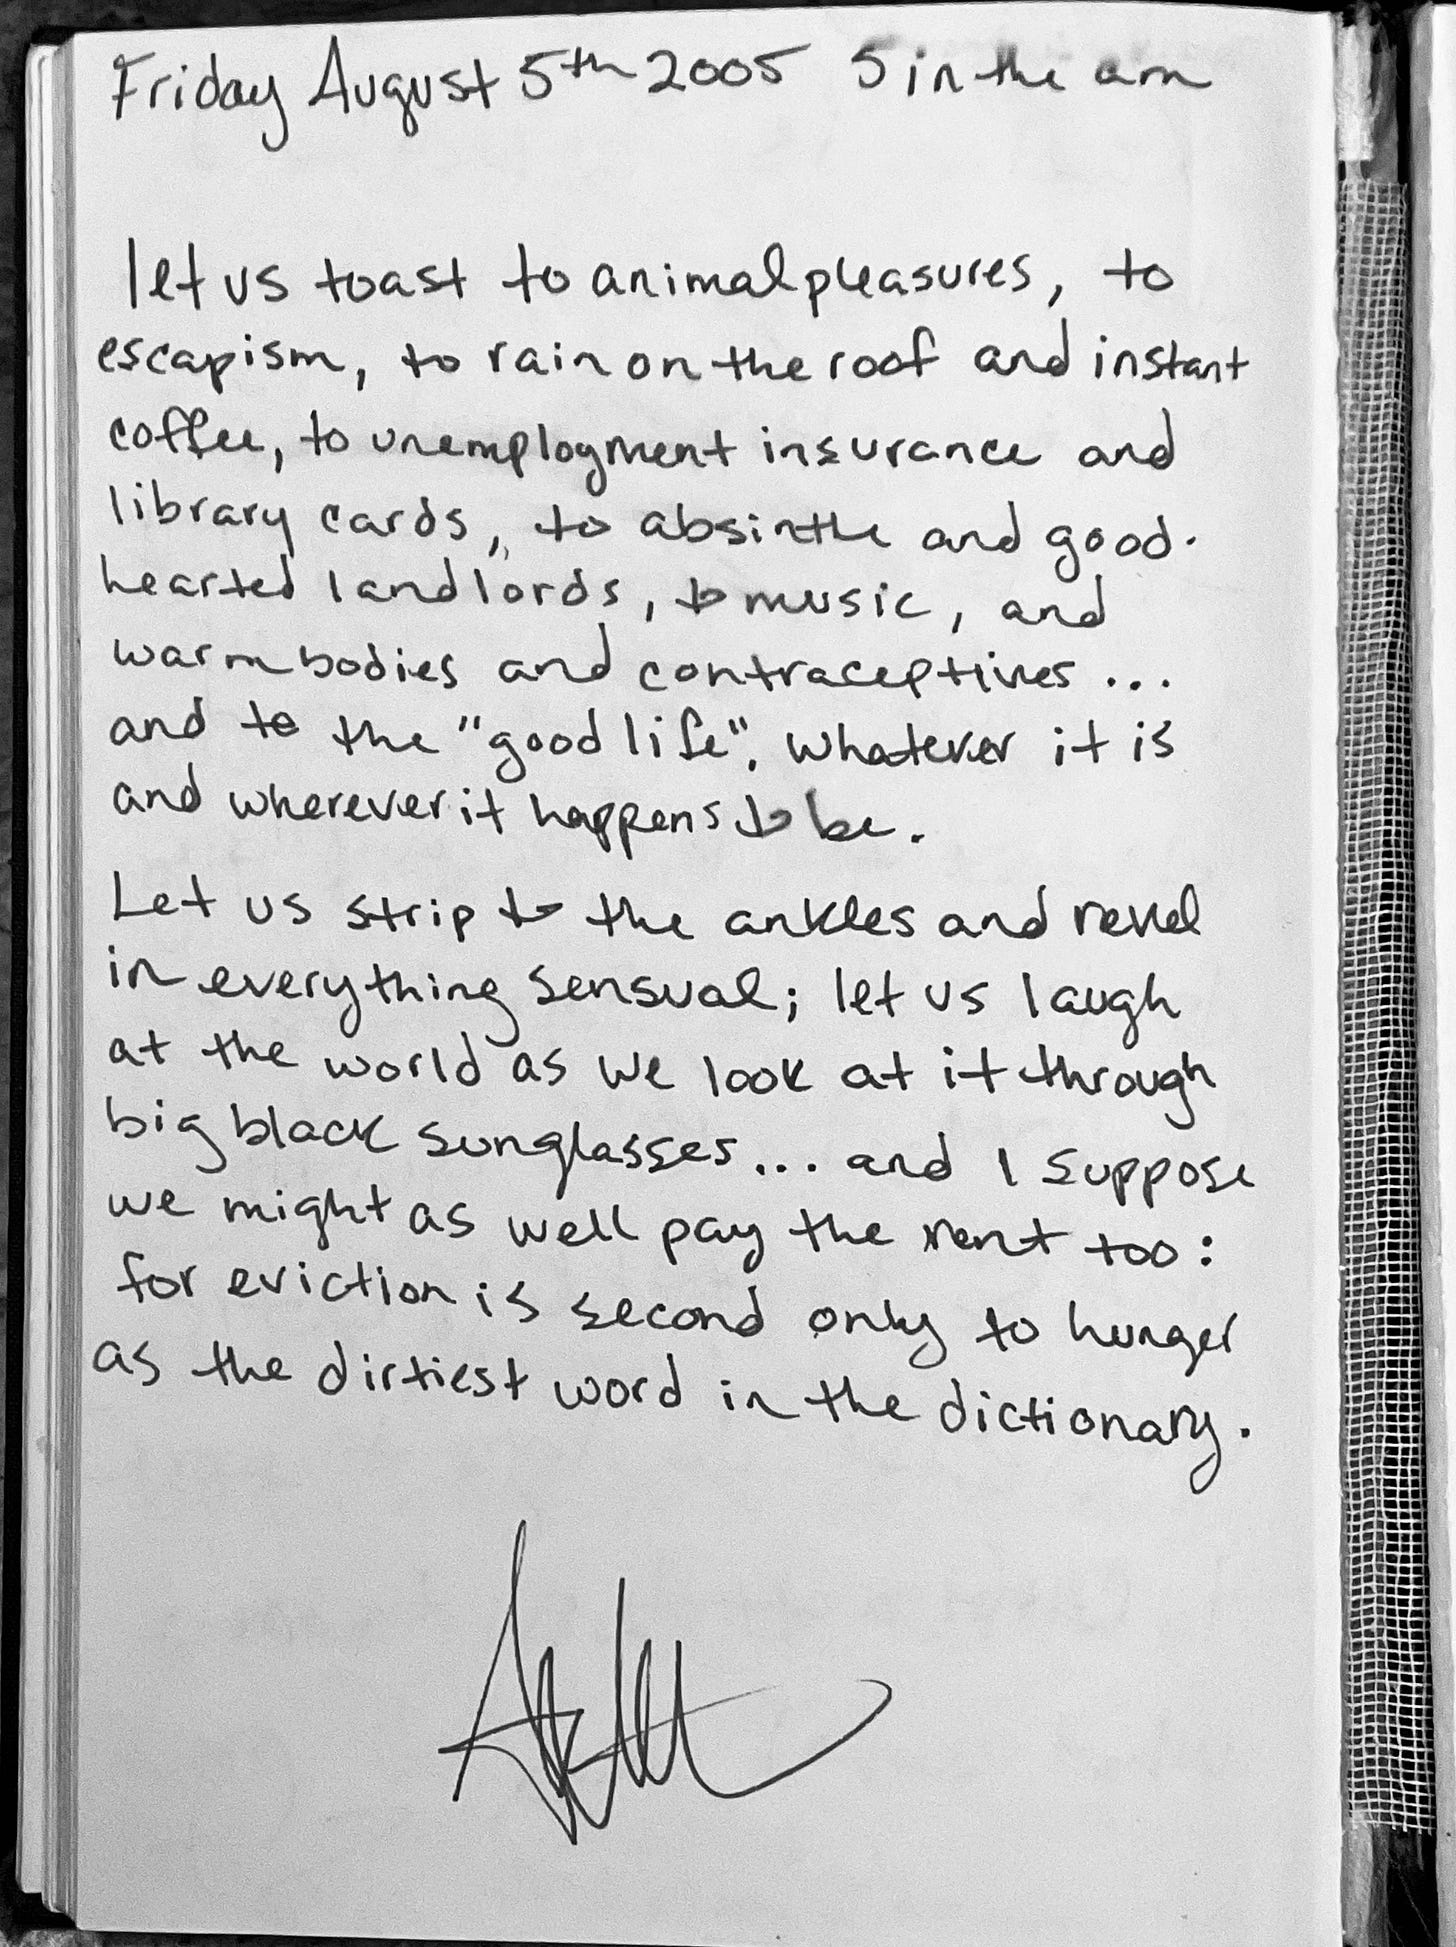 Friday August 5th 2005 5 in the am
let us toast to animal pleasures, to
escapism, to rain on the roof and instant
coffee, to unemployment insurance and
library cards, to absinthe and good-
hearted landlords, to music, and
warm bodies and contraceptives...
and to the "good life", whatever it is
and wherever it happens to be.
Let us strip to the ankles and revel
in everything sensual; let us laugh
at the world as we look at it through
big black sunglasses... and I suppose
we might as well pay the rent too:
for eviction is second only to hunger
as the dirtiest word in the dictionary.